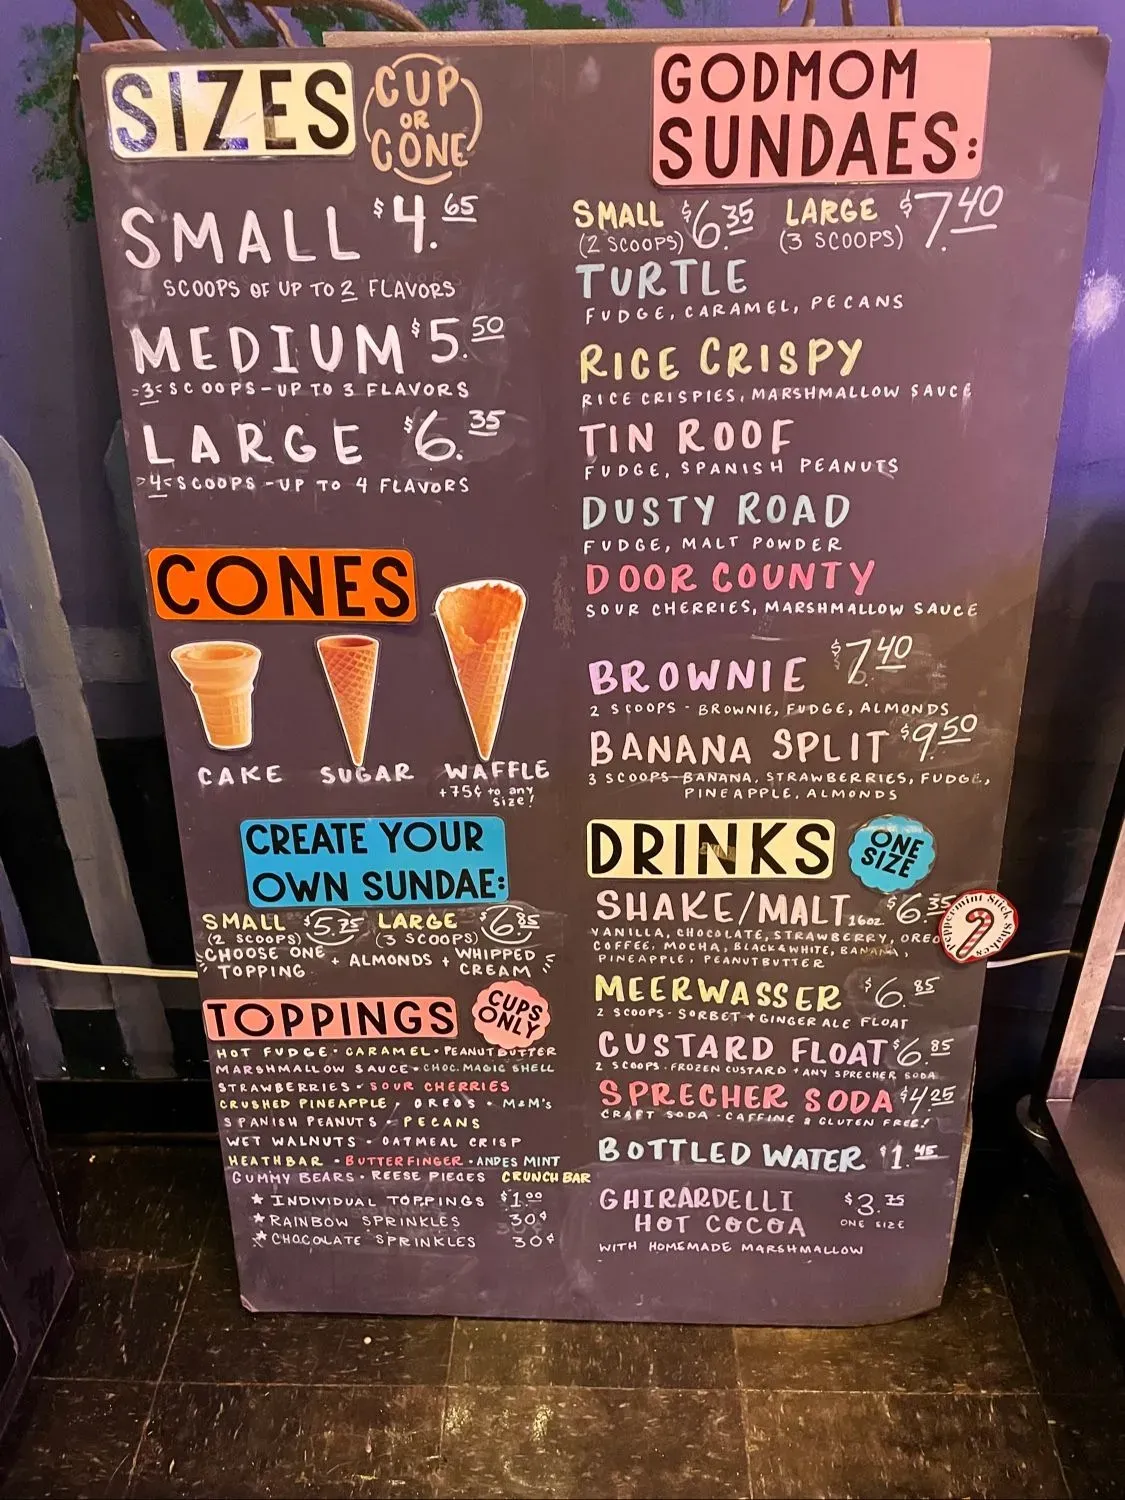 SIZES
CUP
OR
CONE
SMALL $4.65
SCOOPS OF UP TO 2 FLAVORS
MEDIUM $5.50
3 SCOOPS - UP TO 3 FLAVORS
LARGE $6.35
4 SCOOPS - UP TO 4 FLAVORS
CONES
CAKE SUGAR WAFFLE
+75¢ to any
size!
CREATE YOUR
OWN SUNDAE:
SMALL $5.75 LARGE $6.85
(2 SCOOPS) (3 SCOOPS)
CHOOSE ONE + ALMONDS + WHIPPED
TOPPING CREAM
TOPPINGS
CUPS
ONLY
HOT FUDGE · CARAMEL · PEANUT BUTTER
MARSHMALLOW SAUCE · CHOC. MAGIC SHELL
STRAWBERRIES · SOUR CHERRIES
CRUSHED PINEAPPLE · OREOS · M&M's
SPANISH PEANUTS · PECANS
WET WALNUTS · OATMEAL CRISP
HEATHBAR · BUTTERFINGER · ANDES MINT
GUMMY BEARS · REESE PIECES CRUNCH BAR
★ INDIVIDUAL TOPPINGS $1.00
★ RAINBOW SPRINKLES 30¢
★ CHOCOLATE SPRINKLES 30¢
GODMOM
SUNDAES:
SMALL $6.35 LARGE $7.40
(2 SCOOPS) (3 SCOOPS)
TURTLE
FUDGE, CARAMEL, PECANS
RICE CRISPY
RICE CRISPIES, MARSHMALLOW SAUCE
TIN ROOF
FUDGE, SPANISH PEANUTS
DUSTY ROAD
FUDGE, MALT POWDER
DOOR COUNTY
SOUR CHERRIES, MARSHMALLOW SAUCE
BROWNIE $7.40
2 SCOOPS - BROWNIE, FUDGE, ALMONDS
BANANA SPLIT $9.50
3 SCOOPS - BANANA, STRAWBERRIES, FUDGE,
PINEAPPLE, ALMONDS
DRINKS
ONE
SIZE
SHAKE/MALT 16oz $6.35
VANILLA, CHOCOLATE, STRAWBERRY, OREO
COFFEE, MOCHA, BLACK & WHITE, BANANA,
PINEAPPLE, PEANUTBUTTER
Peppermint Stick Shakes
MEERWASSER $6.85
2 SCOOPS - SORBET + GINGER ALE FLOAT
CUSTARD FLOAT $6.85
2 SCOOPS - FROZEN CUSTARD + ANY SPRECHER SODA
SPRECHER SODA $4.25
CRAFT SODA - CAFFINE & GLUTEN FREE!
BOTTLED WATER $1.45
GHIRARDELLI $3.75
HOT COCOA ONE SIZE
WITH HOMEMADE MARSHMALLOW